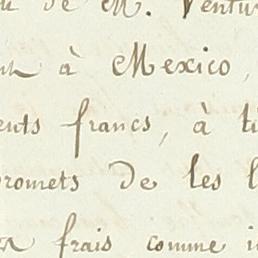 de M. Ventur
à Mexico,
ents francs, à ti
promets de les l
frais comme i